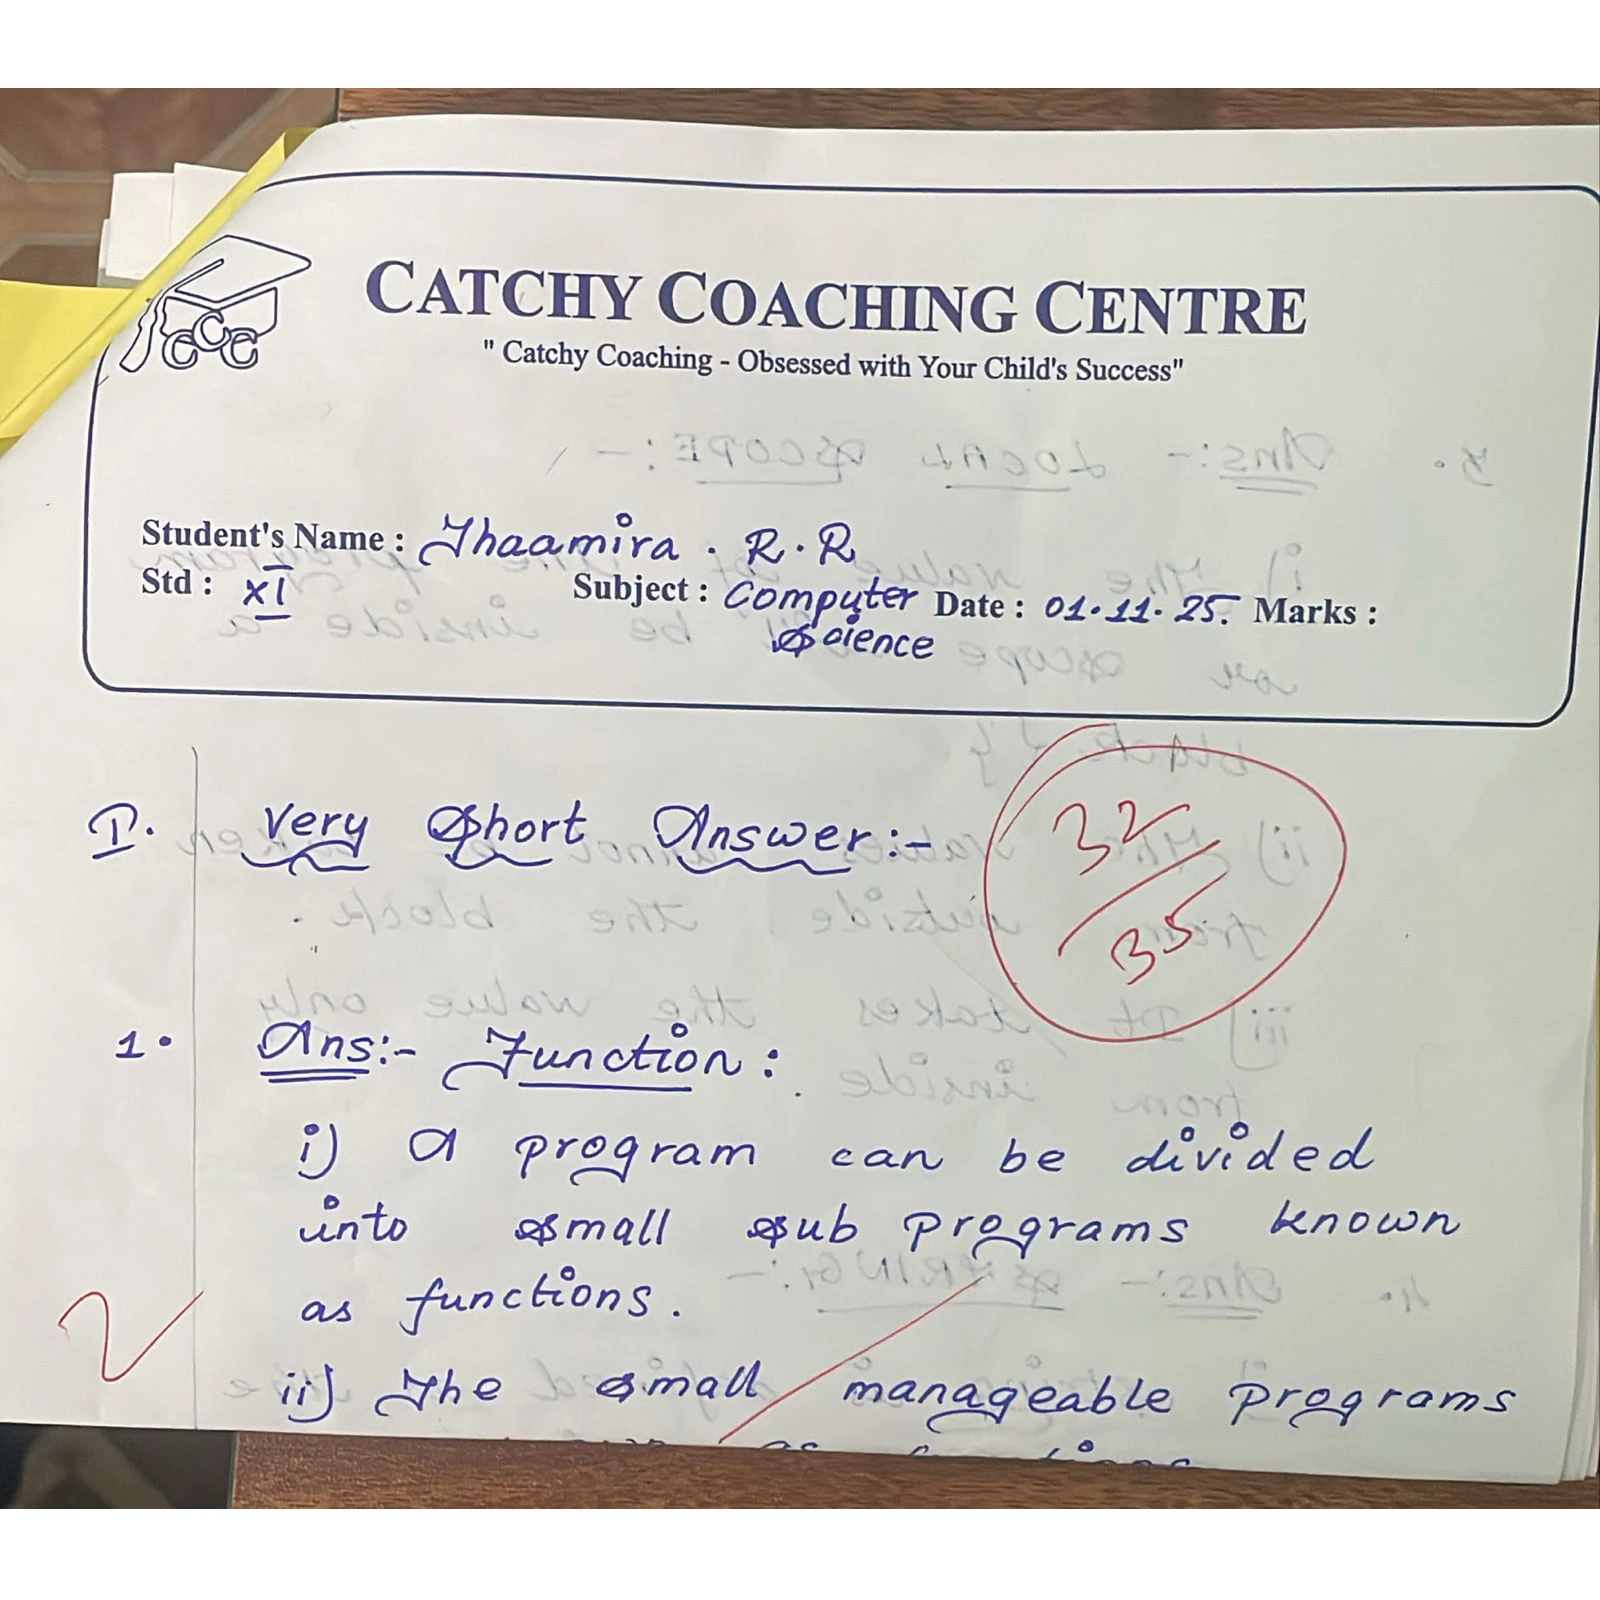 CCC
CATCHY COACHING CENTRE
" Catchy Coaching - Obsessed with Your Child's Success"
Student's Name : Thaamira . R . R
Std : XI Subject : Computer Science Date : 01.11.25. Marks :
32/35
I. Very Short Answer:-
1. Ans:- Function :
i) A program can be divided
into small sub programs known
as functions.
2
ii) The small manageable programs
as functions